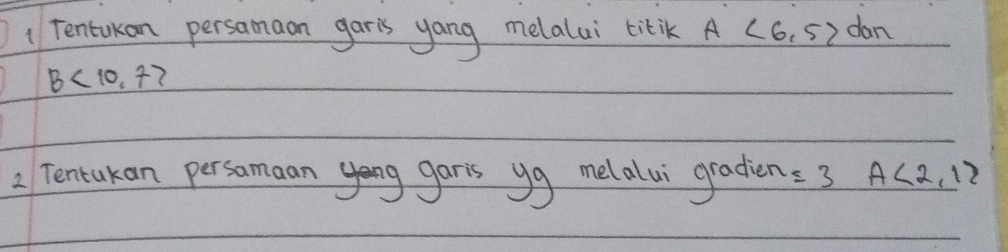 1 Tentukan persamaan garis yang melalui titik A <6,5> dan
B<10,7>
2 Tentukan persamaan yang garis yg melalui gradien = 3 A<2,1>